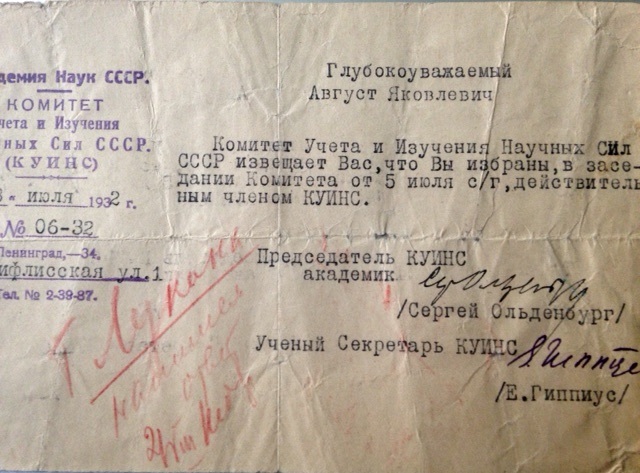 демия Наук СССР.
КОМИТЕТ
чета и Изучения
ных Сил СССР.
(КУИНС)
июля 1932 г.
№ 06-32
Ленинград,—34.
ифлисская ул.1
Тел. № 2-39-87.
Глубокоуважаемый
Август Яковлевич
Комитет Учета и Изучения Научных Сил
СССР извещает Вас,что Вы избраны,в засе-
дании Комитета от 5 июля с/г,действитель
ным членом КУИНС.
Председатель КУИНС
академик
/Сергей Ольденбург/
Ученый Секретарь КУИНС
/Е.Гиппиус/